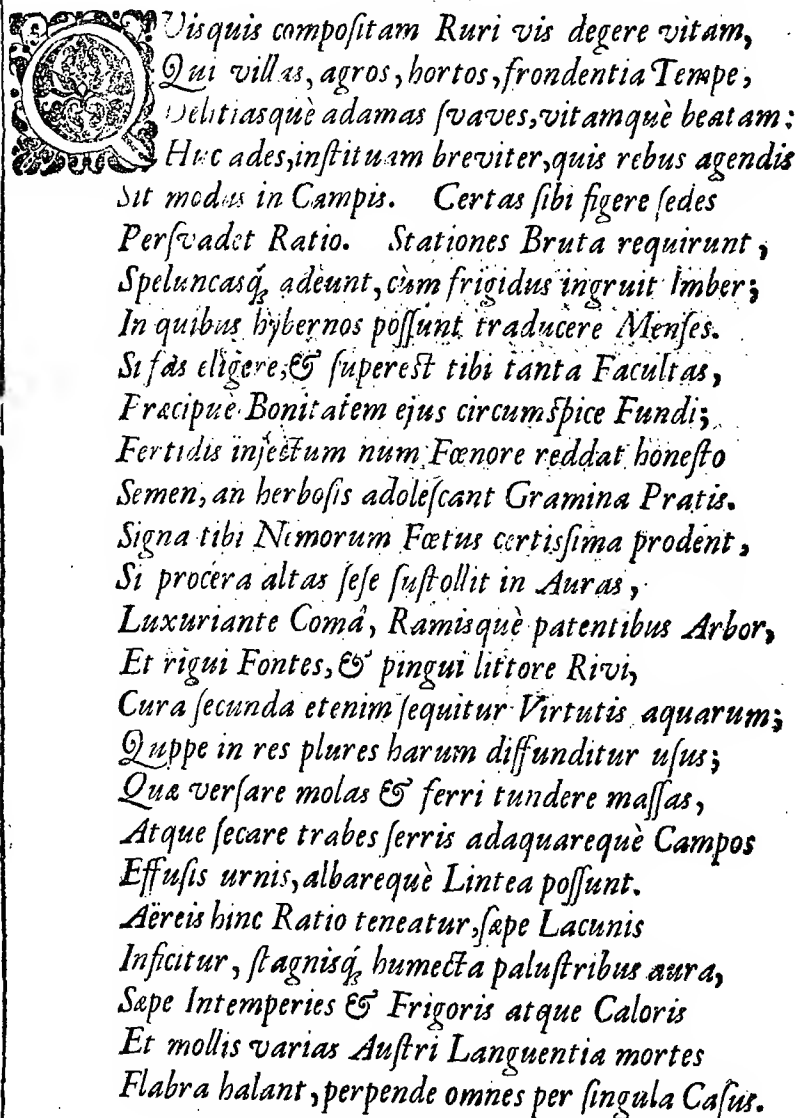 QVisquis compoſitam Ruri vis degere vitam,
Qui villas, agros, hortos, frondentia Tempe,
Delitiasquè adamas ſvaves, vitamquè beatam:
Huc ades, inſtituam breviter, quis rebus agendis
Sit modus in Campis. Certas ſibi figere ſedes
Perſvadet Ratio. Stationes Bruta requirunt,
Speluncasq́; adeunt, cùm frigidus ingruit Imber;
In quibus hybernos poſſunt traducere Menſes.
Si fas eligere, & ſupereſt tibi tanta Facultas,
Præcipuè Bonitatem ejus circumſpice Fundi;
Fertilis injectum num Fœnore reddat honeſto
Semen, an herboſis adoleſcant Gramina Pratis.
Signa tibi Nemorum Fœtus certisſima prodent,
Si procera altas ſeſe ſuſtollit in Auras,
Luxuriante Comâ, Ramisquè patentibus Arbor,
Et rigui Fontes, & pingui littore Rivi,
Cura ſecunda etenim ſequitur Virtutis aquarum;
Quppe in res plures harum diffunditur uſus;
Quæ verſare molas & ferri tundere maſſas,
Atque ſecare trabes ſerris adaquarequè Campos
Effuſis urnis, albarequè Lintea poſſunt.
Aëreis hinc Ratio teneatur, ſæpe Lacunis
Inficitur, ſtagnisq́; humecta paluſtribus aura,
Sæpe Intemperies & Frigoris atque Caloris
Et mollis varias Auſtri Languentia mortes
Flabra halant, perpende omnes per ſingula Caſus.